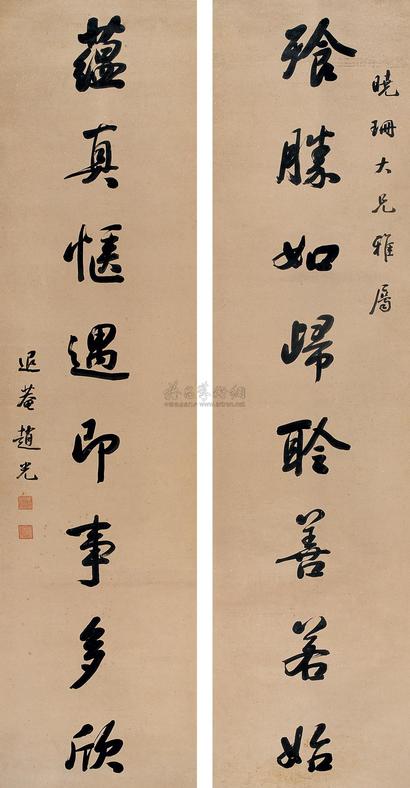 曉珊大兄雅屬
飱勝如歸聆善若始
蘊真愜遇即事多欣
退菴趙光
雅昌藝術網